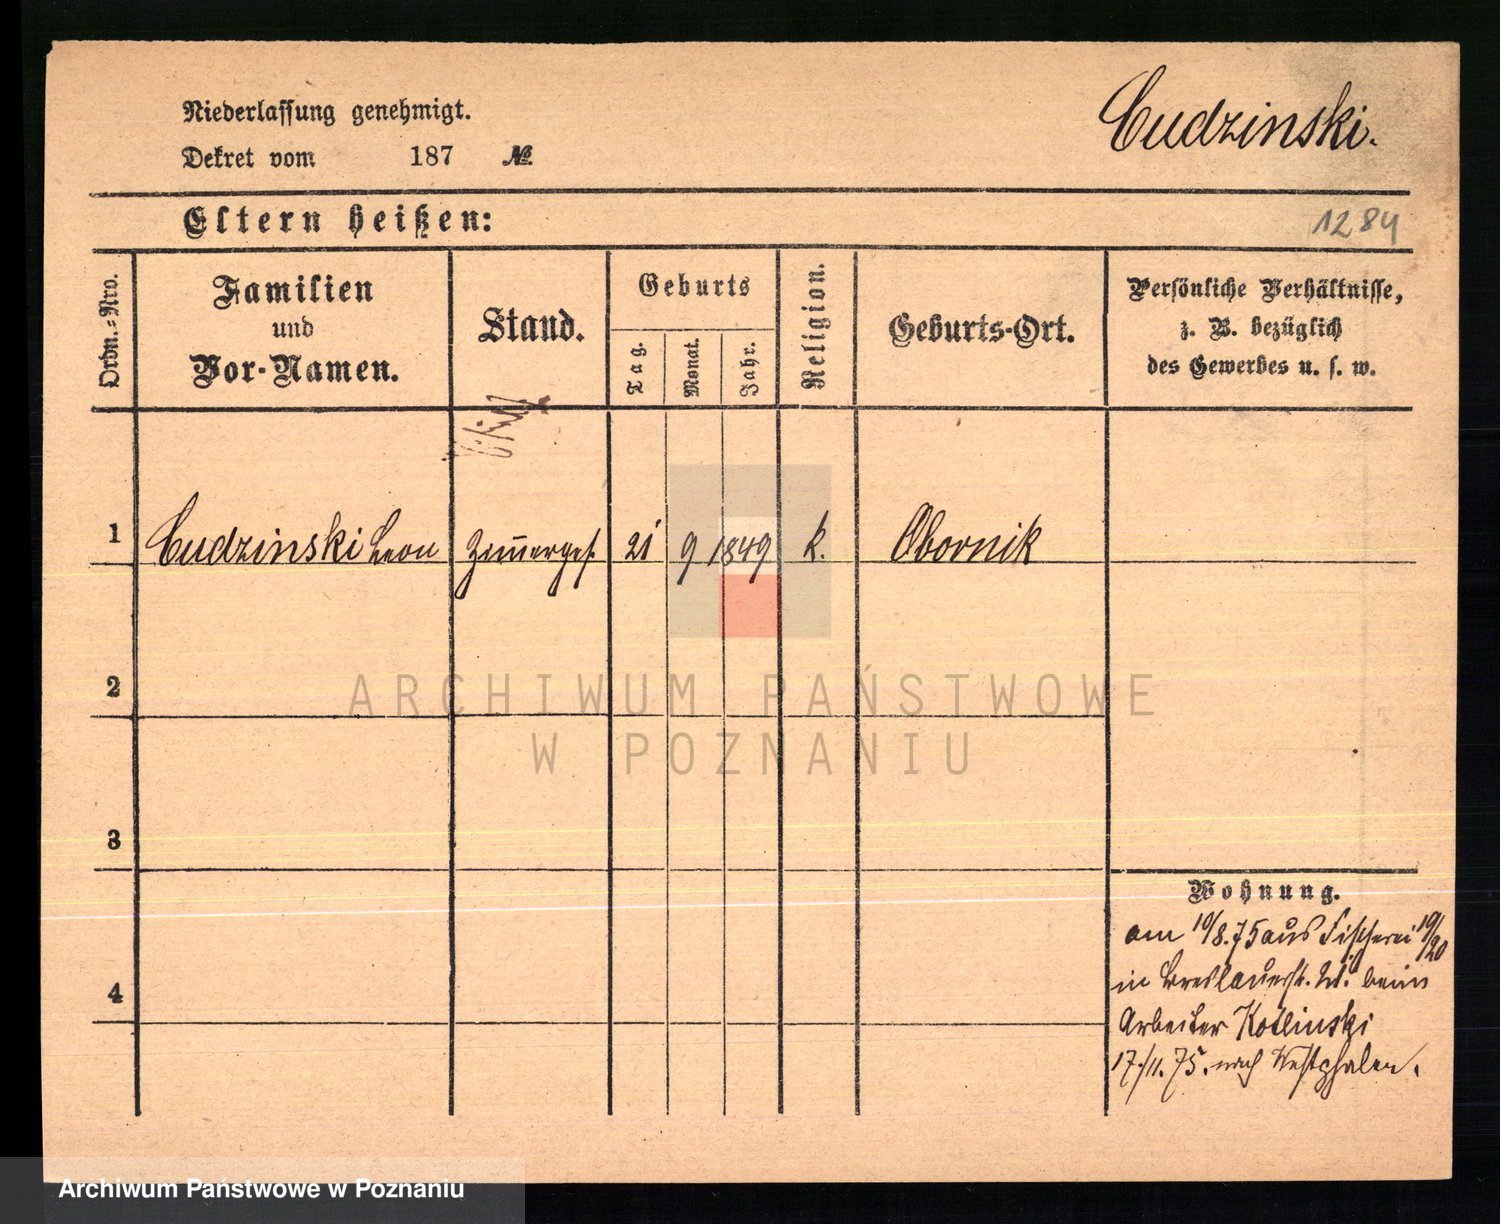 Niederlassung genehmigt.
Dekret vom 187 №
Cudzinski.
Eltern heißen:
1284
Ordn.=Nro.
Familien
und
Vor-Namen.
Stand.
Geburts
Tag.
Monat.
Jahr.
Religion.
Geburts-Ort.
Persönliche Verhältnisse,
z. B. bezüglich
des Gewerbes u. s. w.
1 Cudzinski Leon Zim̅erges. 21 9 1849 k. Obornik
2
3
4
Wohnung.
am 10/8.75 aus Fischerei 19/20
in Breslauerstr. beim
Arbeiter Kotlinski
17./11. 75. nach Westphalen.
ARCHIWUM PAŃSTWOWE
W POZNANIU
Archiwum Państwowe w Poznaniu